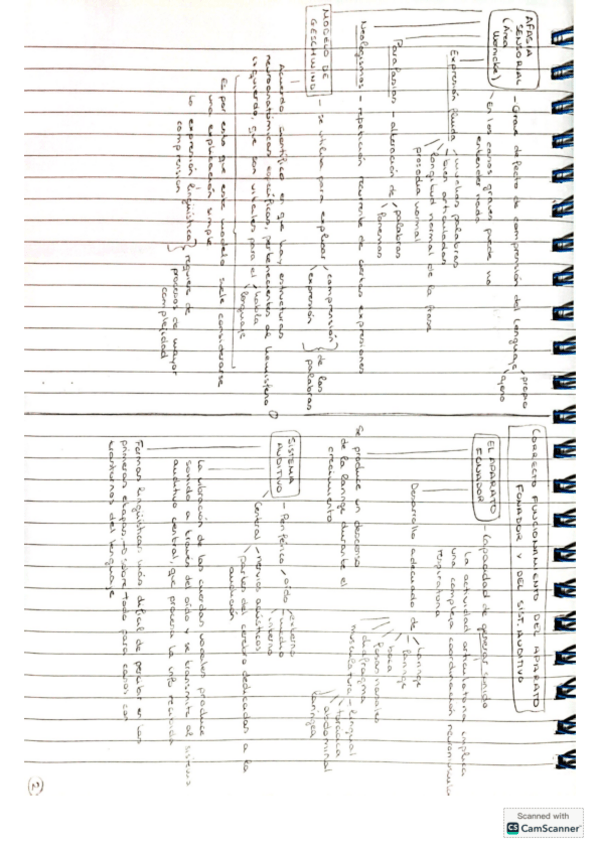 AFASIA SENSORIAL (Área Wernicke)
- Grave defecto de comprensión del lenguaje propio
ajeno
- en los casos graves puede no
entender nada
Expresión fluida muchas palabras
bien articuladas
longitud normal de la frase
prosodia normal
Parafasias - alteración de palabras
fonemas
Neologismos - repetición recurrente de ciertas expresiones
MODELO DE GESCHWIND
- se utiliza para explicar comprensión
expresión
de las palabras
Acuerdo científico en que hay estructuras
neuroanatómicas específicas, pertenecientes al hemisferio
izquierdo, que son vitales para el habla
lenguaje
Es por esto que este modelo suele considerarse
una explicación simple
la expresión lingüística
comprensión
requiere de
procesos de mayor
complejidad
CORRECTO FUNCIONAMIENTO DEL APARATO
FONADOR Y DEL SIST. AUDITIVO
EL APARATO FONADOR
- Capacidad de generar sonido
la actividad articulatoria implica
una compleja coordinación neuromuscular
respiratoria
Desarrollo adecuado de
laringe
boca
fosas nasales
diafragma
musculatura - lingual
torácica
abdominal
laríngea
Se produce un descenso
de la laringe durante el
crecimiento
SISTEMA AUDITIVO
- Periférico oído externo
medio
interno
Central nervios acústicos
partes del cerebro dedicadas a la
audición
La vibración de las cuerdas vocales produce
sonido a través de oído y se transmite al sistema
auditivo central, que procesa la info recibida
Formas lingüísticas más difícil de percibir en las
primeras etapas, sobre todo para casos con
trastornos del lenguaje
2
Scanned with
CS CamScanner